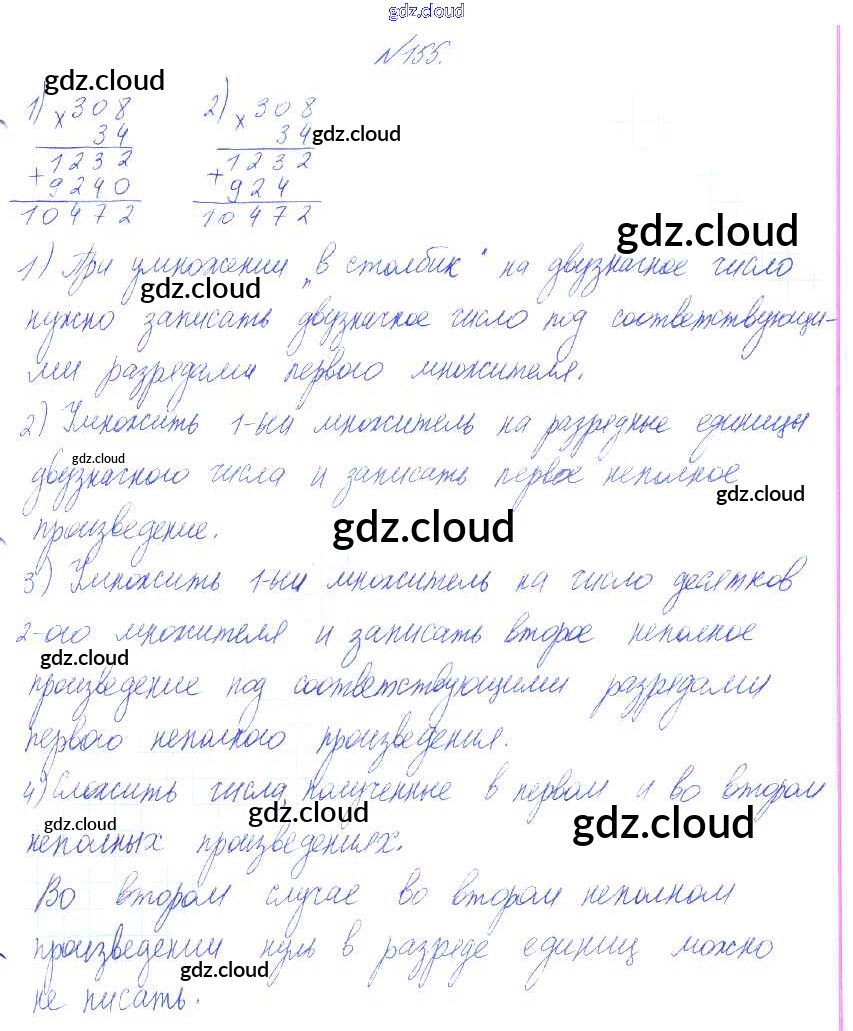 gdz.cloud
№155.
gdz.cloud
1) × 308 2) × 308
34 34 gdz.cloud
1232 1232
+ 9240 + 924
10472 10472
gdz.cloud
1) При умножении „в столбик" на двузначное число
gdz.cloud
нужно записать двузначное число под соответствующи-
ми разрядами первого множителя.
2) Умножить 1-ый множитель на разрядные единицы
gdz.cloud
двузначного числа и записать первое неполное
gdz.cloud
произведение.
gdz.cloud
3) Умножить 1-ый множитель на число десятков
2-ого множителя и записать второе неполное
gdz.cloud
произведение под соответствующими разрядами
первого неполного произведения.
4) Сложить числа, полученные в первом и во втором
gdz.cloud gdz.cloud gdz.cloud
неполных произведениях.
Во втором случае во втором неполном
произведении нуль в разряде единиц можно
gdz.cloud
не писать.